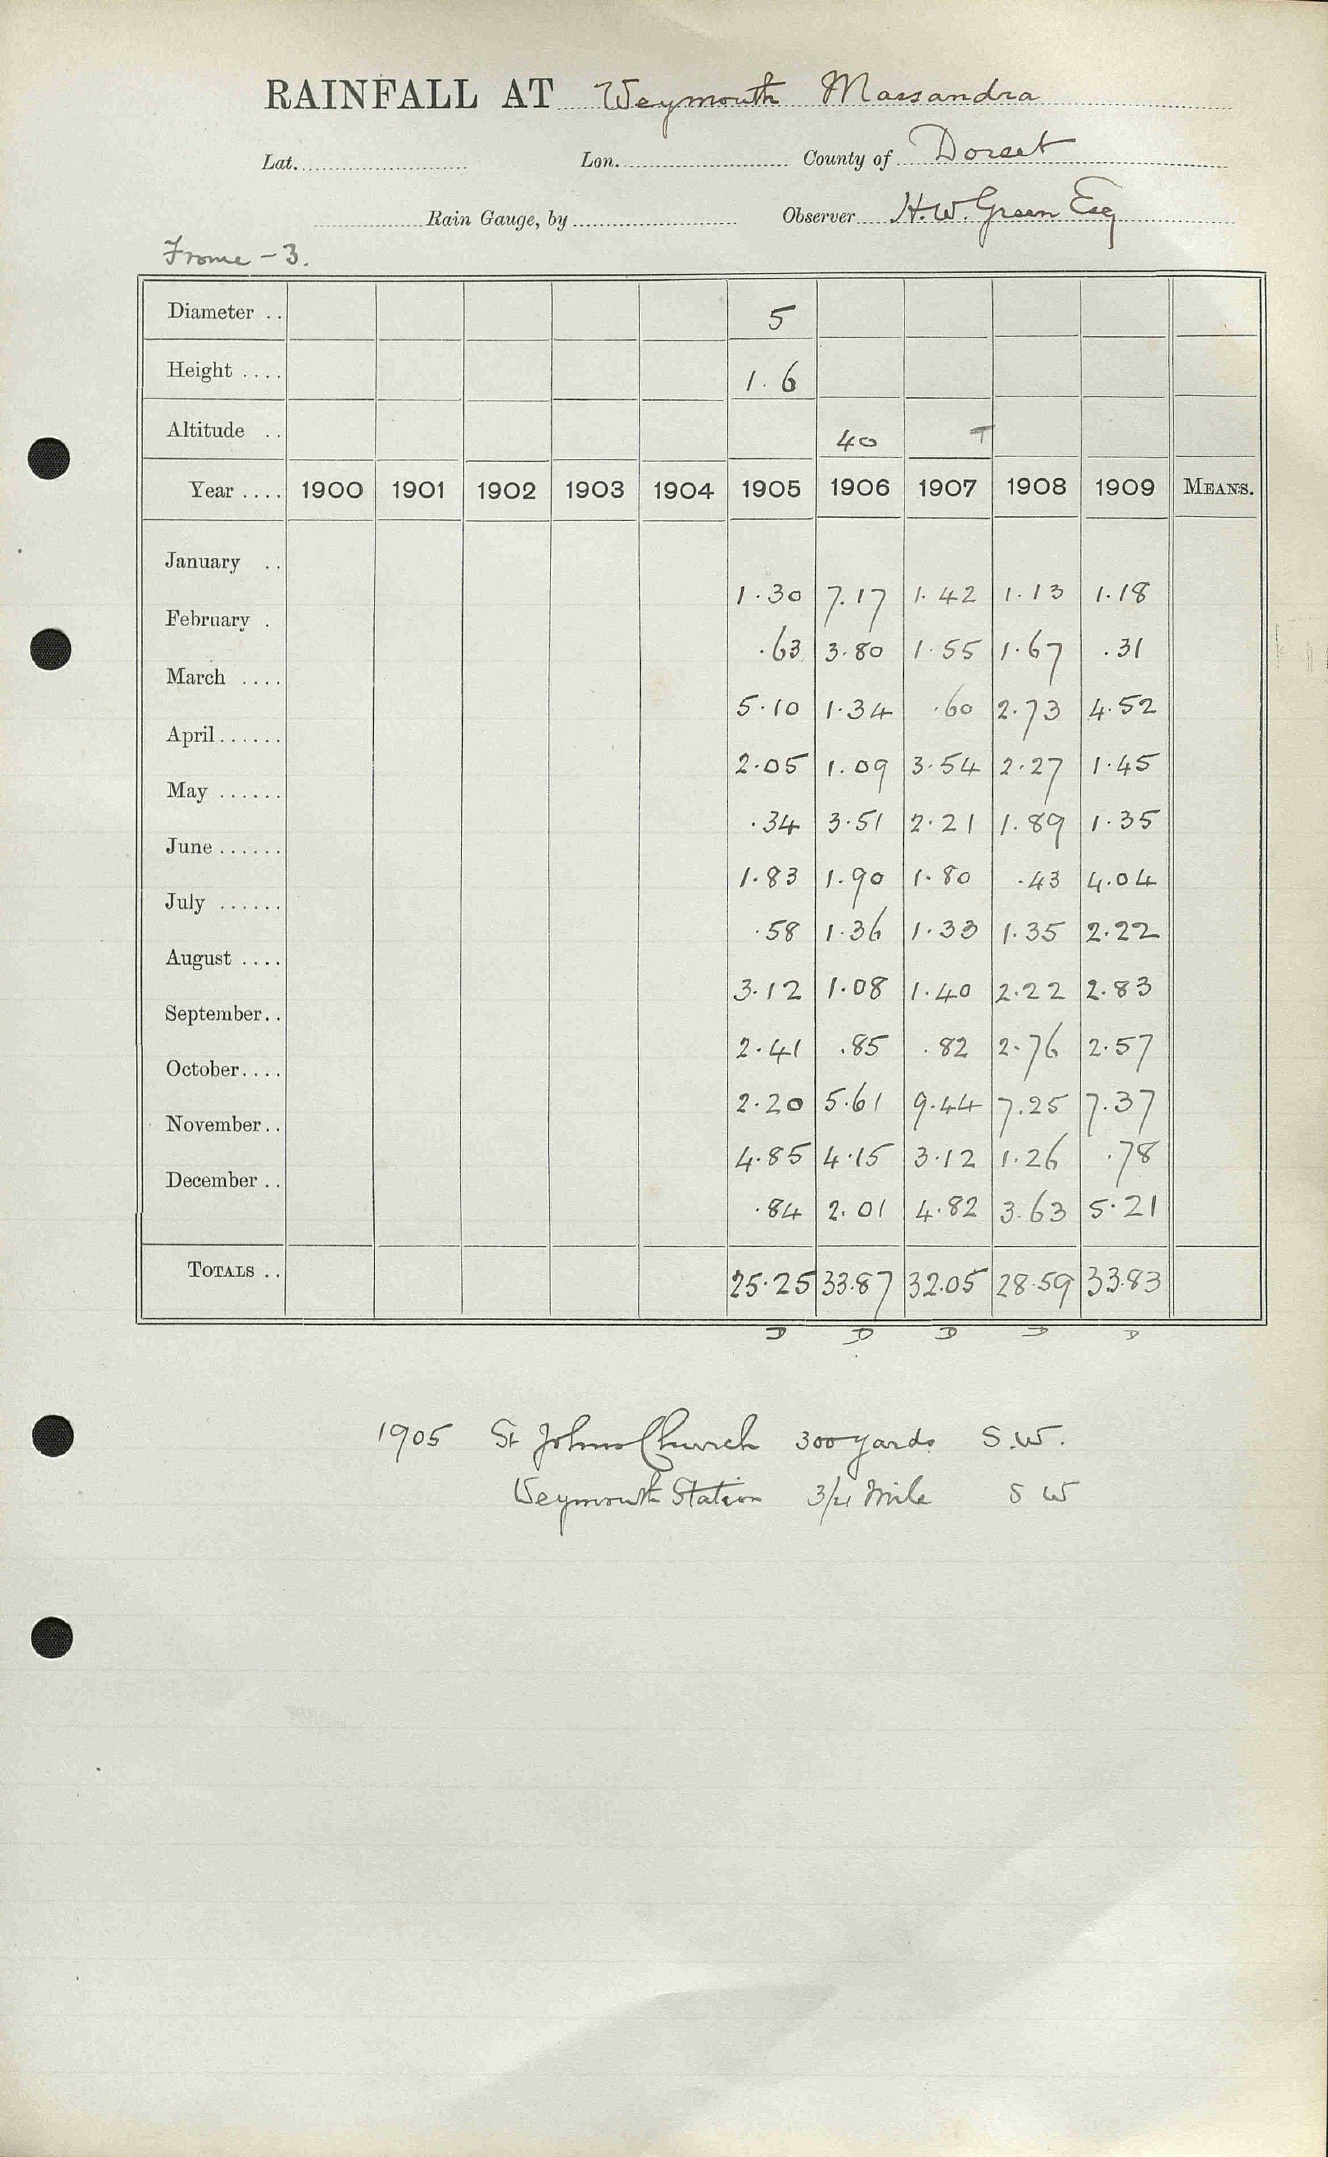 RAINFALL AT Weymouth Massandra
Lat. Lon. County of Dorset
Rain Gauge, by Observer H.W. Green Esq
Frome - 3.
Diameter .. 5
Height .... 1.6
Altitude .. 40 T
Year .... 1900 1901 1902 1903 1904 1905 1906 1907 1908 1909 MEANS.
January .. 1.30 7.17 1.42 1.13 1.18
February . .63 3.80 1.55 1.67 .31
March .... 5.10 1.34 .60 2.73 4.52
April...... 2.05 1.09 3.54 2.27 1.45
May ...... .34 3.51 2.21 1.89 1.35
June...... 1.83 1.90 1.80 .43 4.04
July ...... .58 1.36 1.33 1.35 2.22
August .... 3.12 1.08 1.40 2.22 2.83
September.. 2.41 .85 .82 2.76 2.57
October.... 2.20 5.61 9.44 7.25 7.37
November.. 4.85 4.15 3.12 1.26 .78
December .. .84 2.01 4.82 3.63 5.21
TOTALS .. 25.25 33.87 32.05 28.59 33.83
D D D D D
1905 St Johns Church 300 yards S.W.
Weymouth Station 3/4 Mile S W